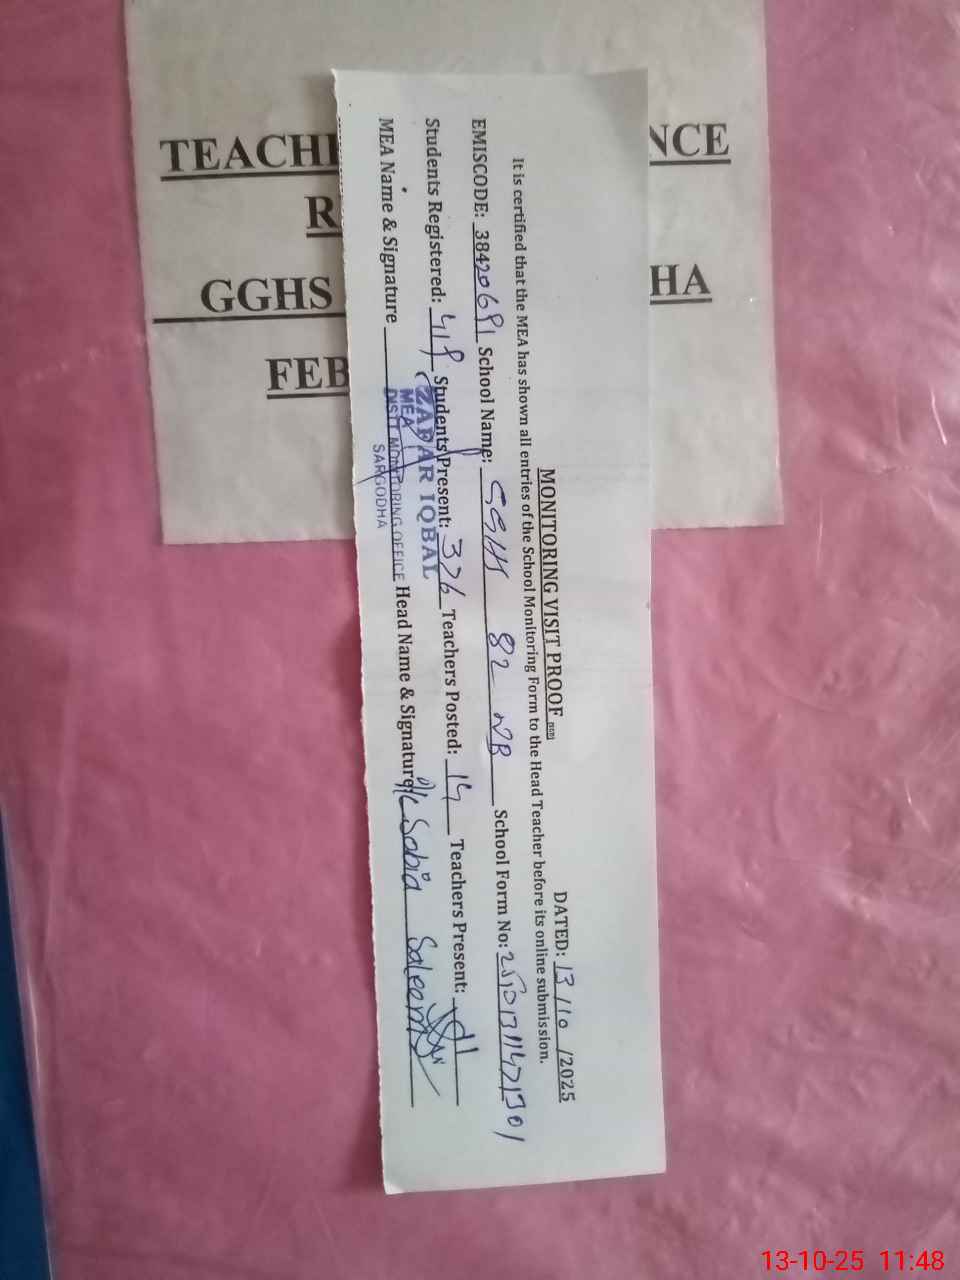 TEACHE NCE
R
GGHS HA
FEB
MONITORING VISIT PROOF
DATED: 13/10/2025
It is certified that the MEA has shown all entries of the School Monitoring Form to the Head Teacher before its online submission.
EMISCODE: 38420691 School Name: GGHS 82 NB School Form No:
Students Registered: 419 Students Present: 376 Teachers Posted: 14 Teachers Present:
MEA Name & Signature Head Name & Signature Sobia Saleem
ZAFAR IQBAL
MEA
DISTT MONITORING OFFICE
SARGODHA
13-10-25 11:48